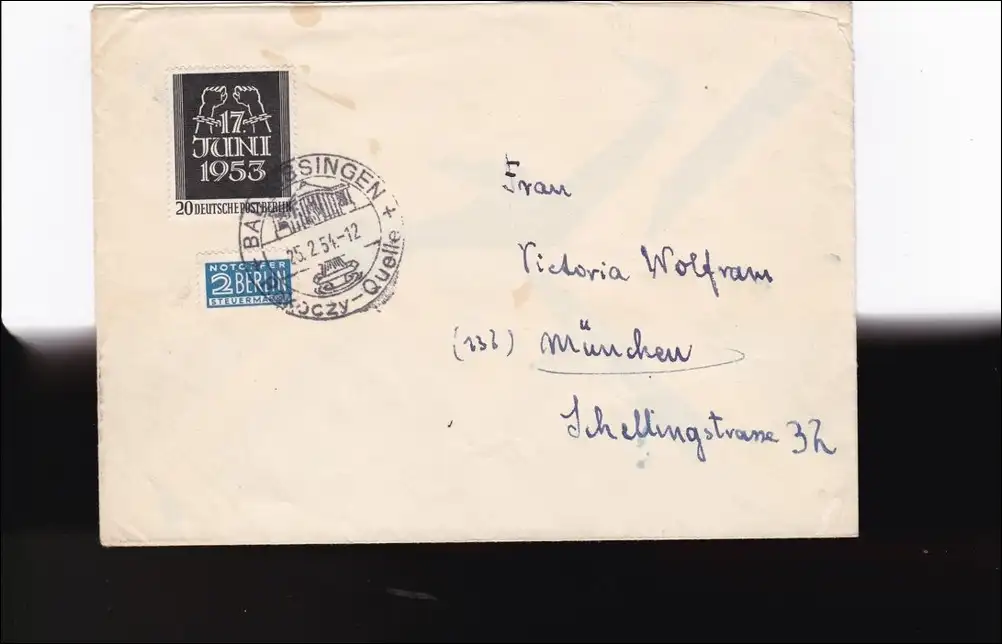 17.
JUNI
1953
20 DEUTSCHE POST BERLIN
BAD KISSINGEN +
25.2.54.-12
Rakoczy-Quelle
NOTOPFER
2 BERLIN
STEUERMARKE
Frau
Victoria Wolfram
(13b) München
Schellingstrasse